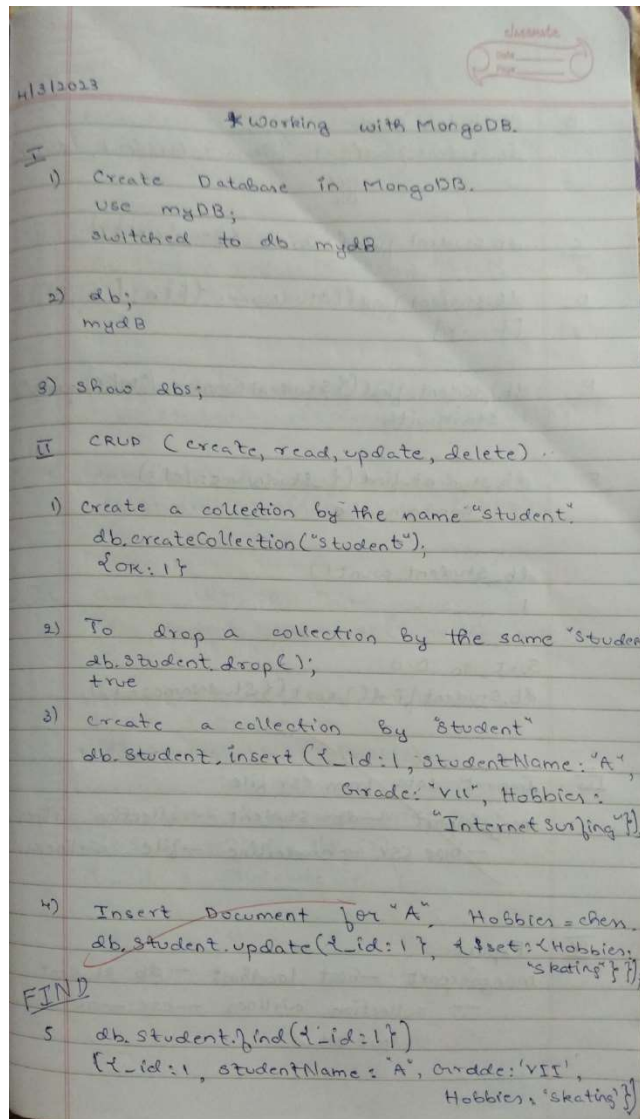 classmate
Date
Page
4/3/2023
* Working with MongoDB.
I
1) Create Database in MongoDB.
use myDB;
switched to db mydB
2) db;
mydB
3) show dbs;
II CRUD (create, read, update, delete)..
1) create a collection by the name "student".
db.createCollection("student");
{OK: 1}
2) To drop a collection by the same "studen
db.student.drop();
true
3) create a collection by "student"
db.student.insert({_id:1, studentName: "A",
Grade: "VII", Hobbies:
"Internet surfing"})
4) Insert Document for "A". Hobbies = chess.
db.student.update({_id:1}, {$set:{Hobbies:
"skating"}})
FIND
5 db.student.find({_id=1})
[{_id:1, studentName: "A", Grdde: 'VII',
Hobbies: 'skating'}]